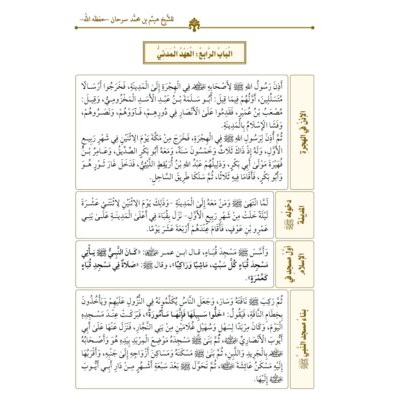 للشيخ هيثم بن محمد سرحان -حفظه الله-
البَابُ الرَّابِعُ: العَهْدُ المَدَنِيُّ
الإذن في الهجرة
أَذِنَ رَسُولُ اللهِ ﷺ لِأَصْحَابِهِ ﷺ فِي الْهِجْرَةِ إِلَى الْمَدِينَةِ، فَخَرَجُوا أَرْسَالًا
مُتَسَلِّلِينَ، أَوَّلُهُمْ فِيمَا قِيلَ: أَبُو سَلَمَةَ بْنُ عَبْدِ الْأَسَدِ الْمَخْزُومِيُّ، وَقِيلَ:
مُصْعَبُ بْنُ عُمَيْرٍ، فَقَدِمُوا عَلَى الْأَنْصَارِ فِي دُورِهِمْ، فَآوَوْهُمْ، وَنَصَرُوهُمْ،
وَفَشَا الْإِسْلَامُ بِالْمَدِينَةِ.
ثُمَّ أُذِنَ لِرَسُولِ اللهِ ﷺ فِي الْهِجْرَةِ، فَخَرَجَ مِنْ مَكَّةَ يَوْمَ الِاثْنَيْنِ فِي شَهْرِ رَبِيعٍ
الْأَوَّلِ، وَلَهُ إِذْ ذَاكَ ثَلَاثٌ وَخَمْسُونَ سَنَةً، وَمَعَهُ أَبُو بَكْرٍ الصِّدِّيقُ، وَعَامِرُ بْنُ
فُهَيْرَةَ مَوْلَى أَبِي بَكْرٍ، وَدَلِيلُهُمْ عَبْدُ اللهِ بْنُ أُرَيْقِطٍ اللَّيْثِيُّ، فَدَخَلَ غَارَ ثَوْرٍ هُوَ
وَأَبُو بَكْرٍ، فَأَقَامَا فِيهِ ثَلَاثًا، ثُمَّ سَلَكَا طَرِيقَ السَّاحِلِ.
دخوله ﷺ المدينة
لَمَّا انْتَهَى ﷺ وَمَنْ مَعَهُ إِلَى الْمَدِينَةِ -وَذَلِكَ يَوْمَ الِاثْنَيْنِ لِاثْنَتَيْ عَشْرَةَ
لَيْلَةً خَلَتْ مِنْ شَهْرِ رَبِيعٍ الْأَوَّلِ- نَزَلَ بِقُبَاءٍ فِي أَعْلَى الْمَدِينَةِ عَلَى بَنِي
عَمْرِو بْنِ عَوْفٍ، فَأَقَامَ عِنْدَهُمْ أَرْبَعَةَ عَشَرَ يَوْمًا.
أول مسجد في الإسلام
وَأَسَّسَ ﷺ مَسْجِدَ قُبَاءٍ، قال ابن عمر: «كَانَ النَّبِيُّ ﷺ يَأْتِي
مَسْجِدَ قُبَاءٍ كُلَّ سَبْتٍ، مَاشِيًا وَرَاكِبًا»، وقال ﷺ: «صَلَاةٌ فِي مَسْجِدِ قُبَاءٍ
كَعُمْرَةٍ».
بناء مسجد النبي ﷺ
ثُمَّ رَكِبَ ﷺ نَاقَتَهُ وَسَارَ، وَجَعَلَ النَّاسُ يُكَلِّمُونَهُ فِي النُّزُولِ عَلَيْهِمْ وَيَأْخُذُونَ
بِخِطَامِ النَّاقَةِ، فَيَقُولُ: «خَلُّوا سَبِيلَهَا فَإِنَّهَا مَأْمُورَةٌ»، فَبَرَكَتْ عِنْدَ مَسْجِدِهِ
الْيَوْمَ، وَكَانَ مِرْبَدًا لِسَهْلٍ وَسُهَيْلٍ غُلَامَيْنِ مِنْ بَنِي النَّجَّارِ، فَنَزَلَ عَنْهَا عَلَى أَبِي
أَيُّوبَ الْأَنْصَارِيِّ، ثُمَّ بَنَى ﷺ مَسْجِدَهُ مَوْضِعَ الْمِرْبَدِ بِيَدِهِ هُوَ وَأَصْحَابُهُ
بِالْجَرِيدِ وَاللَّبِنِ، ثُمَّ بَنَى ﷺ مَسْكَنَهُ وَمَسَاكِنَ أَزْوَاجِهِ إِلَى جَنْبِهِ، وَأَقْرَبُهَا
إِلَيْهِ مَسْكَنُ عَائِشَةَ، ثُمَّ تَحَوَّلَ ﷺ بَعْدَ سَبْعَةِ أَشْهُرٍ مِنْ دَارِ أَبِي أَيُّوبَ
إِلَيْهَا.